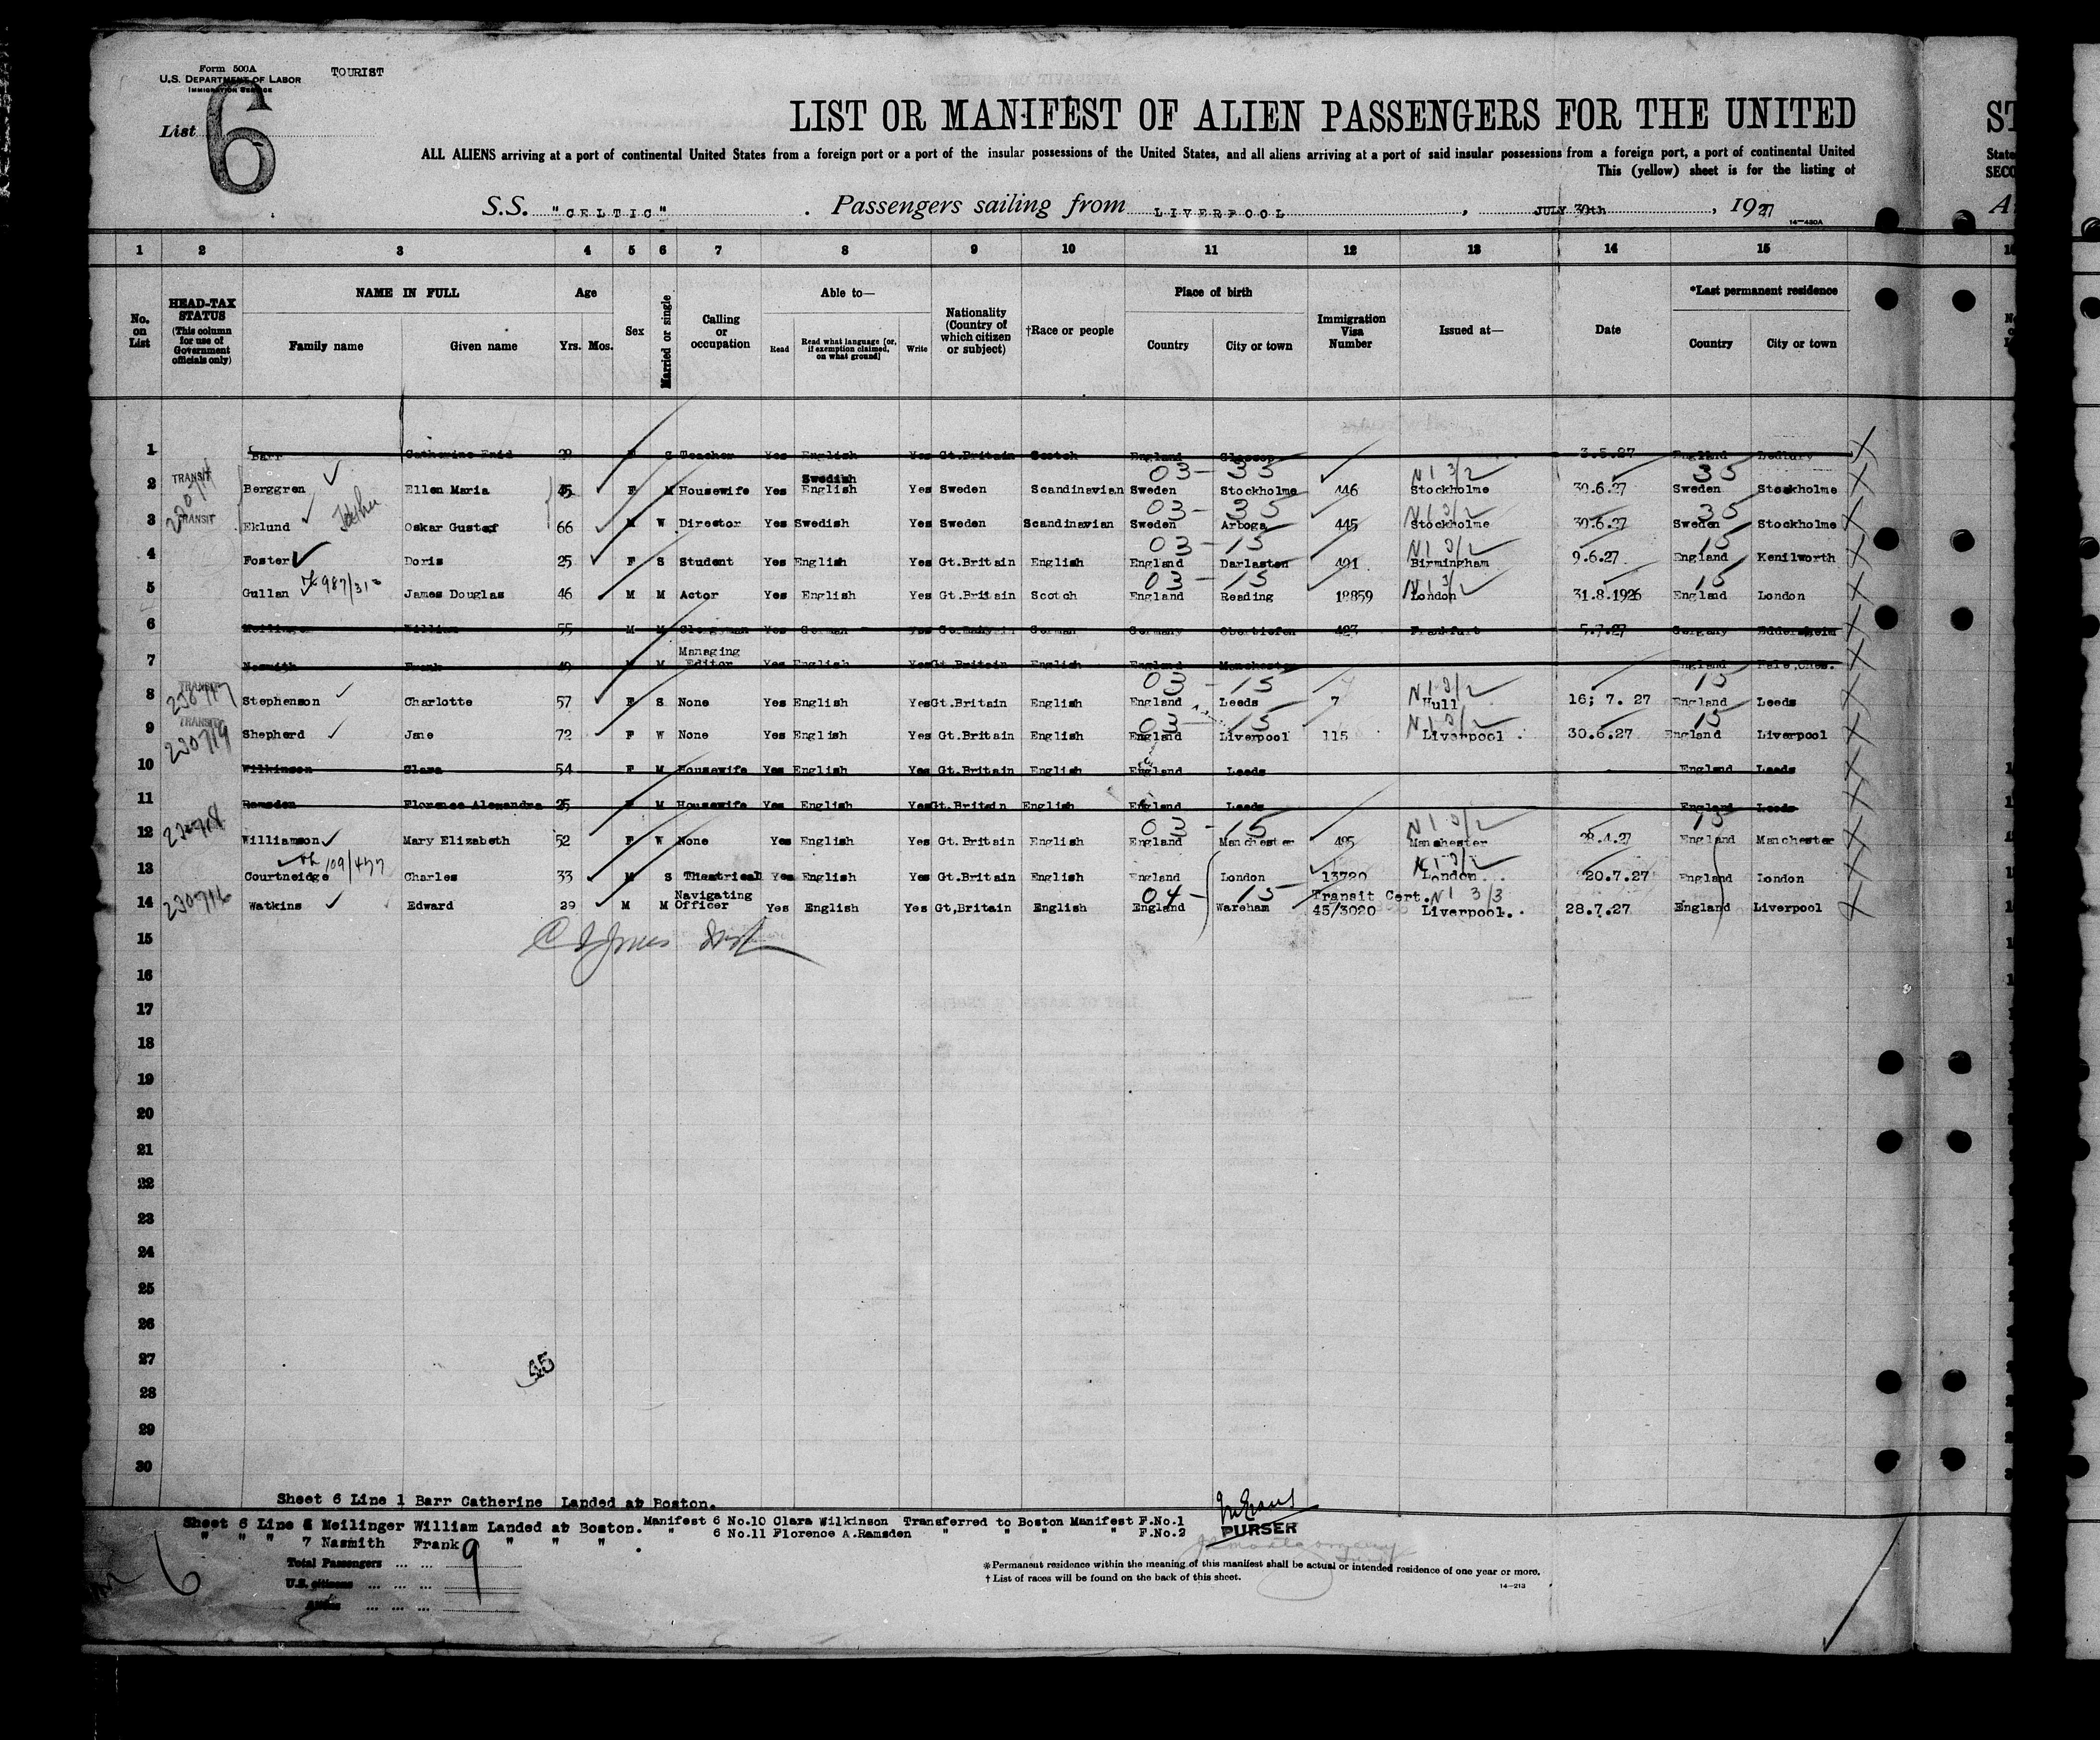 Form 500A
U.S. DEPARTMENT OF LABOR
IMMIGRATION SERVICE
TOURIST
List 6
LIST OR MANIFEST OF ALIEN PASSENGERS FOR THE UNITED
ALL ALIENS arriving at a port of continental United States from a foreign port or a port of the insular possessions of the United States, and all aliens arriving at a port of said insular possessions from a foreign port, a port of continental United
This (yellow) sheet is for the listing of
S.S. "CELTIC". Passengers sailing from LIVERPOOL, JULY 30th, 1927
14—430A
1 2 3 4 5 6 7 8 9 10 11 12 13 14 15
No. on List
HEAD-TAX STATUS (This column for use of Government officials only)
NAME IN FULL Family name Given name
Age Yrs. Mos.
Sex
Married or single
Calling or occupation
Able to— Read Read what language [or, if exemption claimed, on what ground] Write
Nationality (Country of which citizen or subject)
†Race or people
Place of birth Country City or town
Immigration Visa Number
Issued at—
Date
*Last permanent residence Country City or town
1 Barr Catherine Enid F S Teacher Yes English Yes Gt.Britain Scotch England Glossop 3.5.27 England Ledbury
03- 35 N1 3/2 35
2 TRANSIT Berggren Ellen Maria 45 F M Housewife Yes Swedish English Yes Sweden Scandinavian Sweden Stockholme 446 Stockholme 30.6.27 Sweden Stockholme
03- 35 N1 3/2 35
3 TRANSIT Eklund Oskar Gustaf 66 M W Director Yes Swedish Yes Sweden Scandinavian Sweden Arboga 445 Stockholme 30.6.27 Sweden Stockholme
03-15 N1 3/2 15
4 Foster Doris 25 F S Student Yes English Yes Gt.Britain English England Darlaston 491 Birmingham 9.6.27 England Kenilworth
03-15 N1 3/2 15
5 Gullan James Douglas 46 M M Actor Yes English Yes Gt.Britain Scotch England Reading 18859 London 31.8.1926 England London
6 Meilinger William 55 M M Clergyman Yes German Yes German Germany Obertiefen 427 Frankfurt 5.7.27 Germany Eddersheim
7 Nasmith Frank 49 M M Managing Editor Yes English Yes Gt.Britain English England Manchester England Hale,Ches.
03-15 N1 3/2 15
8 TRANSIT 230717 Stephenson Charlotte 57 F S None Yes English Yes Gt.Britain English England Leeds 7 Hull 16; 7. 27 England Leeds
03-15 N1 3/2 15
9 TRANSIT 230719 Shepherd Jane 72 F W None Yes English Yes Gt.Britain English England Liverpool 115 Liverpool. 30.6.27 England Liverpool
10 Wilkinson Clara 54 F M Housewife Yes English Yes Gt.Britain English England Leeds England Leeds
11 Ramsden Florence Alexandra 25 F M Housewife Yes English Yes Gt.Britain English England Leeds England Leeds
03-15 N1 3/2 15
12 230718 Williamson Mary Elizabeth 52 F W None Yes English Yes Gt.Britain English England Manchester 495 Manchester 28.4.27 England Manchester
109/477 N1 3/2
13 Courtneidge Charles 33 M S Theatrical Yes English Yes Gt.Britain English England London 13720 London. 20.7.27 England London
04-15 N1 3/3
14 230716 Watkins Edward 29 M M Navigating Officer Yes English Yes Gt,Britain English England Wareham Transit Cert. 45/3020 Liverpool. 28.7.27 England Liverpool
15
16
17
18
19
20
21
22
23
24
25
26
27
28
29
30
Sheet 6 Line 1 Barr Catherine Landed at Boston.
Sheet 6 Line 6 Meilinger William Landed at Boston. Manifest 6 No.10 Clara Wilkinson Transferred to Boston Manifest F.No.1
" " " 7 Nasmith Frank " " " . " 6 No.11 Florence A.Ramsden " " " " F.No.2
PURSER
Total Passengers ... ...
9
U.S. citizens ... ... ...
Aliens ... ... ...
6
*Permanent residence within the meaning of this manifest shall be actual or intended residence of one year or more.
† List of races will be found on the back of this sheet.
14—213